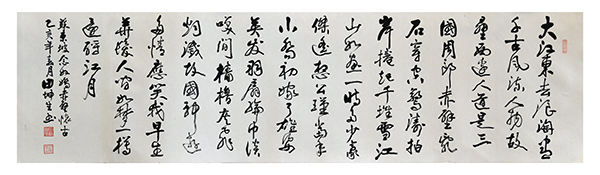 大江東去浪淘盡
千古風流人物故
壘西邊人道是三
國周郎赤壁亂
石穿空驚濤拍
岸捲起千堆雪江
山如畫一時多少豪
傑遙想公瑾當年
小喬初嫁了雄姿
英發羽扇綸巾談
笑間檣櫓灰飛
烟滅故國神遊
多情應笑我早生
華髮人間如夢一樽
還酹江月
蘇東坡念奴嬌赤壁懷古
乙亥年 月田坤生書